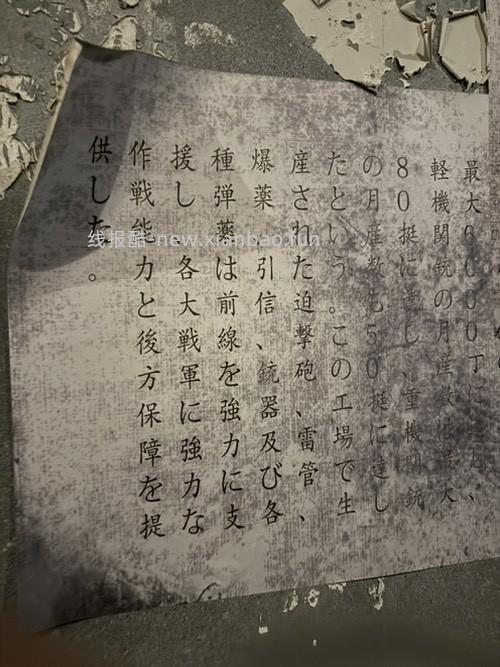 最大6000丁に達し、
軽機関銃の月産数は最大
80挺に達し、重機関銃
の月産数も50挺に達し
たという。この工場で生
産された迫撃砲、雷管、
爆薬、引信、銃器及び各
種弾薬は前線を強力に支
援し、各大戦軍に強力な
作戦能力と後方保障を提
供した。
线报酷 new.xianbao.fun